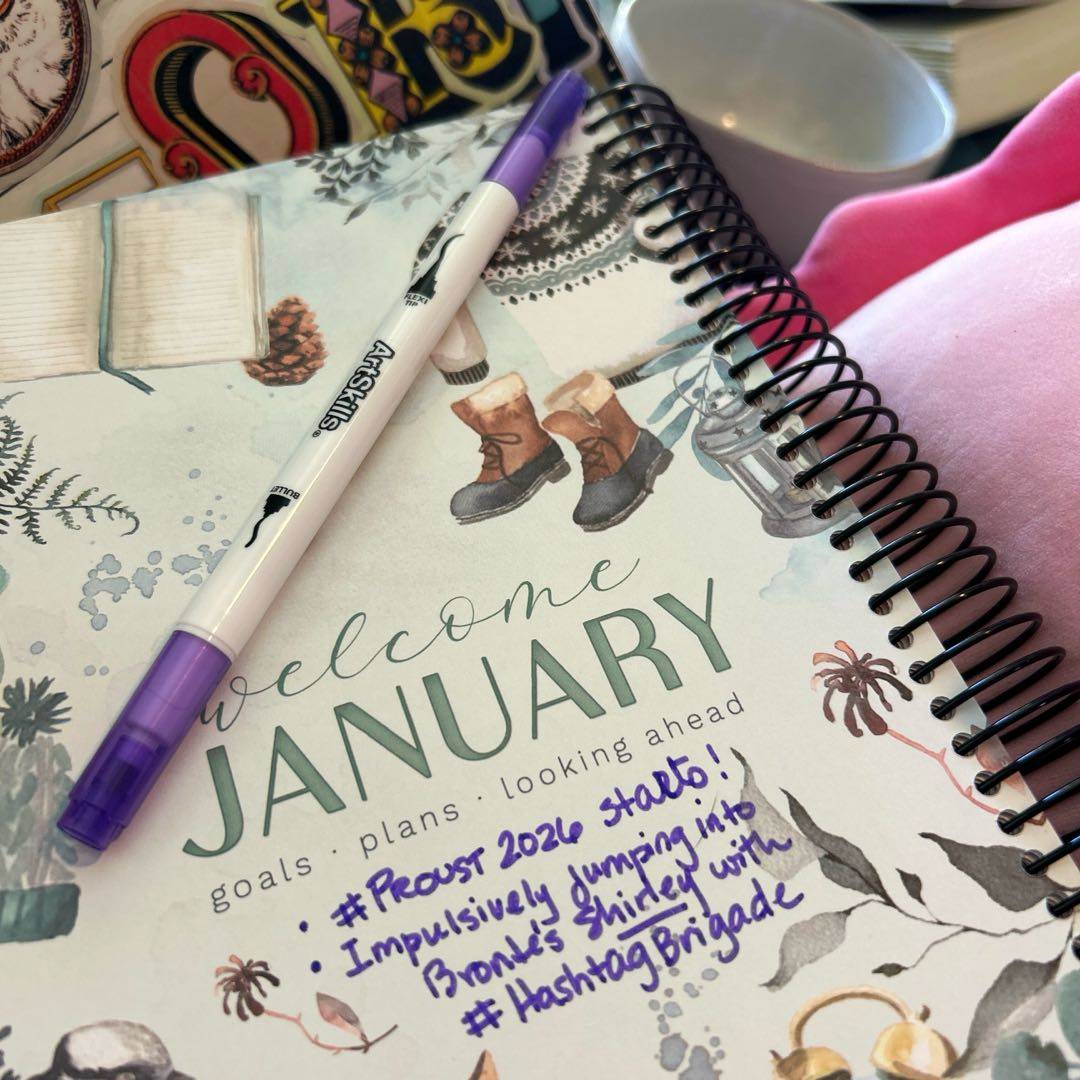 FLEXI
TIP
ArtSkills®
BULLET
welcome
JANUARY
goals · plans · looking ahead
• #PROUST 2026 starts!
• Impulsively jumping into
Bronte's Shirley with
#HashtagBrigade